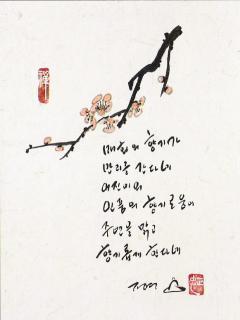 매화의 향기가
만리를 간다네
여인의
인품의 향기로움이
주변을 맑고
향기롭게 한다네